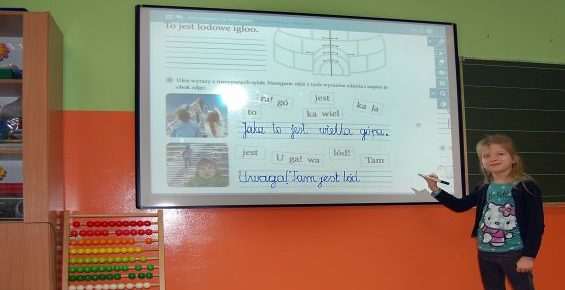 To jest lodowe igloo.
Ułóż wyrazy z rozsypanych sylab. Następnie ułóż z tych wyrazów zdania i napisz je
obok zdjęć.
ra! gó
jest
ka Ja
to
ka wiel
Jaka to jest wielka góra.
jest
U ga! wa
lód!
Tam
Uwaga! Tam jest lód